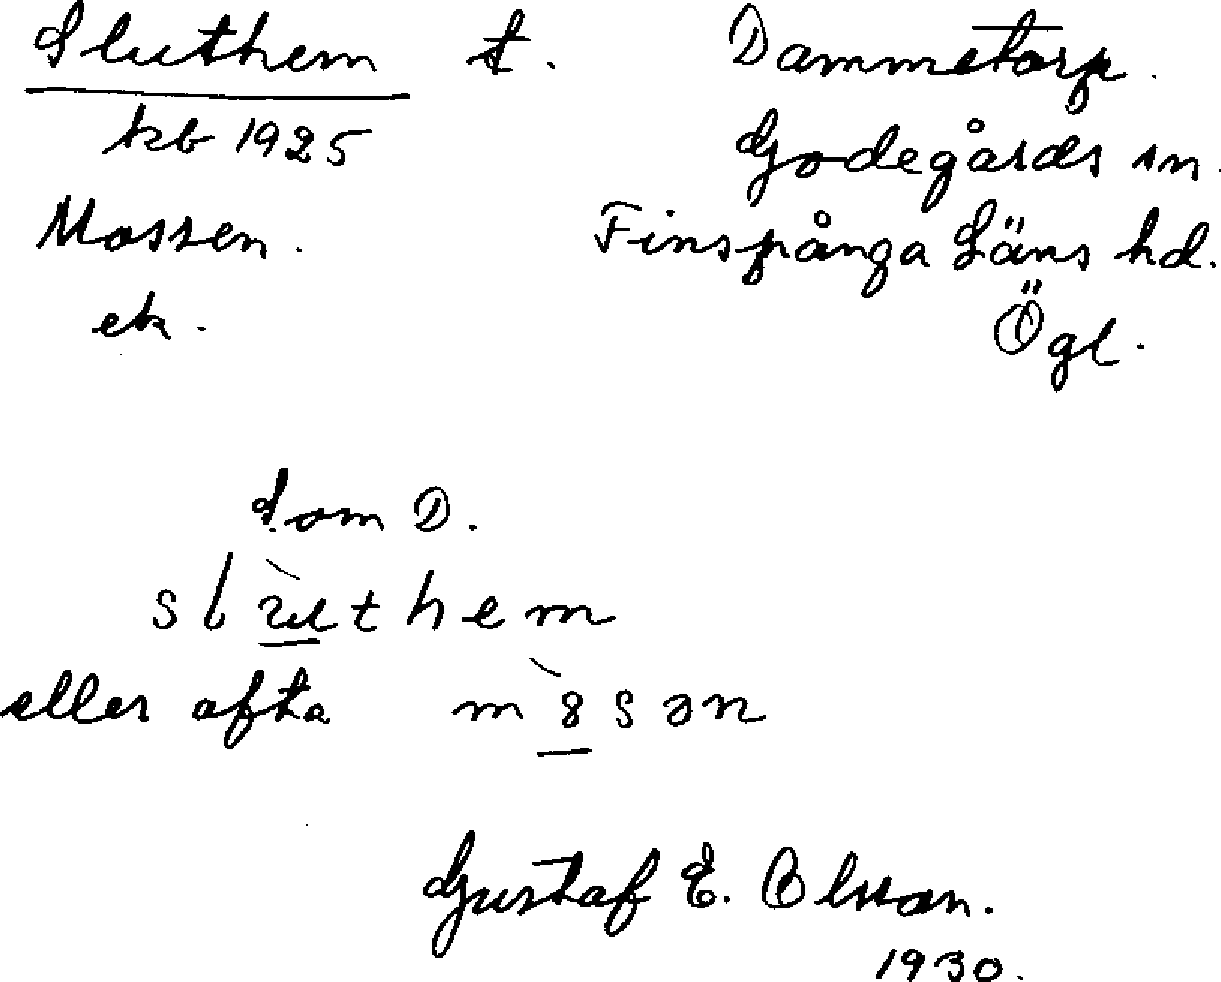 Sluthem t. Dammetorp.
kb 1925 Godegårds sn.
Mossen. Finspånga Läns hd.
ek. Ögl.
Som D.
slùthem
eller ofta m8̀sən
Gustaf E. Olsson.
1930.